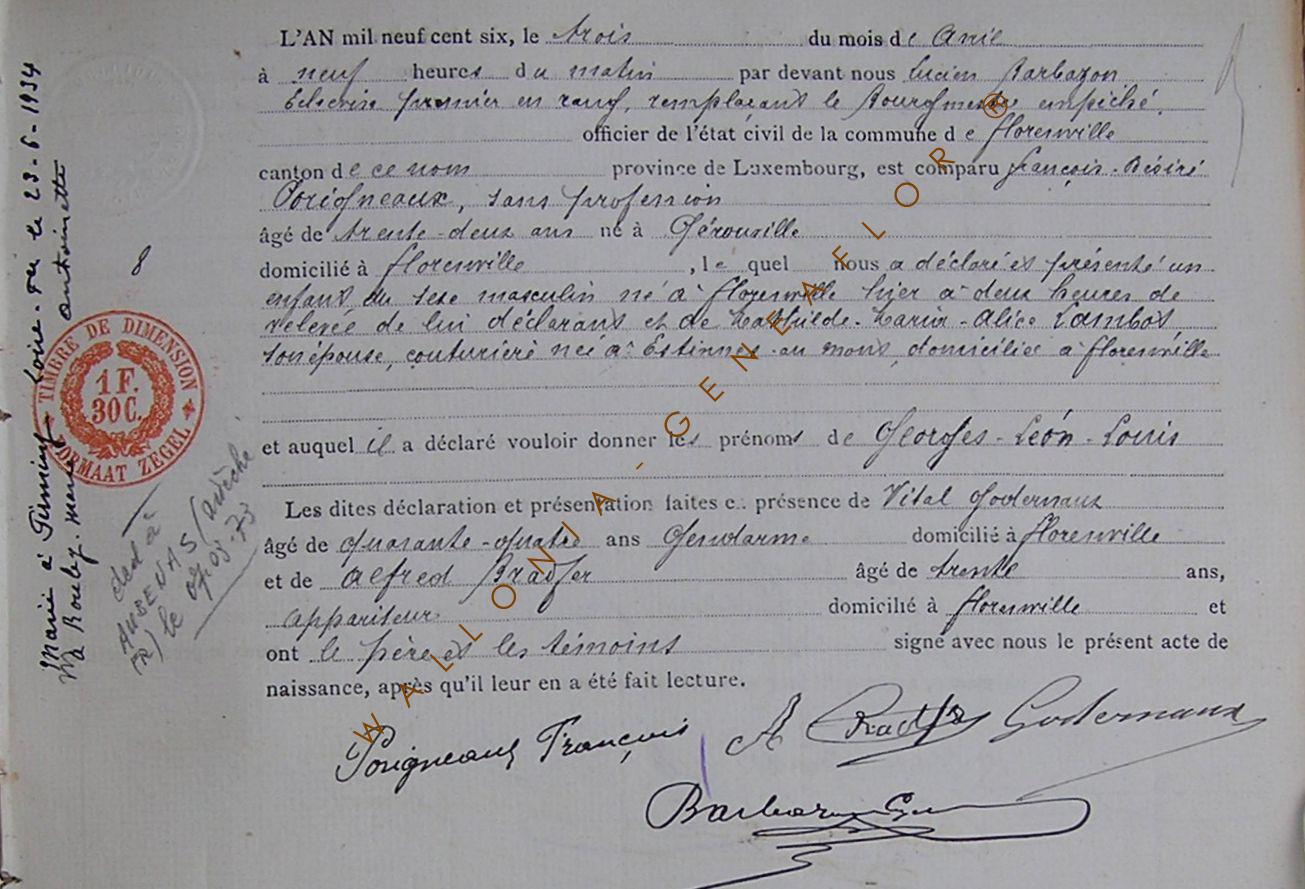 L'AN mil neuf cent six, le trois du mois de Avril
à neuf heures du matin par devant nous Lucien Barbazon
Echevin premier en rang, remplaçant le Bourgmestre empêché,
officier de l'état civil de la commune de Florenville
canton de ce nom province de Luxembourg, est comparu François-Désiré
Porigneaux, sans profession
âgé de trente-deux ans né à Gérouville
domicilié à Florenville, lequel nous a déclaré et présenté un
enfant du sexe masculin né à Florenville hier à deux heures de
relevée de lui déclarant et de Mathilde-Marie-Alice Lambot
son épouse, couturière née à Estinnes-au mont, domiciliée à Florenville
et auquel il a déclaré vouloir donner les prénoms de Georges-Léon-Louis
Les dites déclaration et présentation faites en présence de Vital Godernaux
âgé de quarante-quatre ans Gendarme domicilié à Florenville
et de Alfred Bradfer âgé de trente ans,
appariteur domicilié à Florenville et
ont le père et les témoins signé avec nous le présent acte de
naissance, après qu'il leur en a été fait lecture.
Porigneaux François A Bradfer Godernaux
Barbazon
8
Marié à Firminy Loire le 23-6-1934
à Antoinette
TIMBRE DE DIMENSION
1 F.
30 C.
FORMAAT ZEGEL
ded à
AUBENAS (Ardèche
FR) le 07.08.73
WALLONIA-GENEAFLOR®